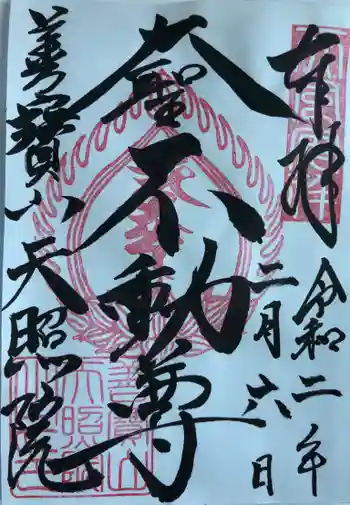 奉拝
令和二年
二月六日
大聖不動尊
善寳山天照院